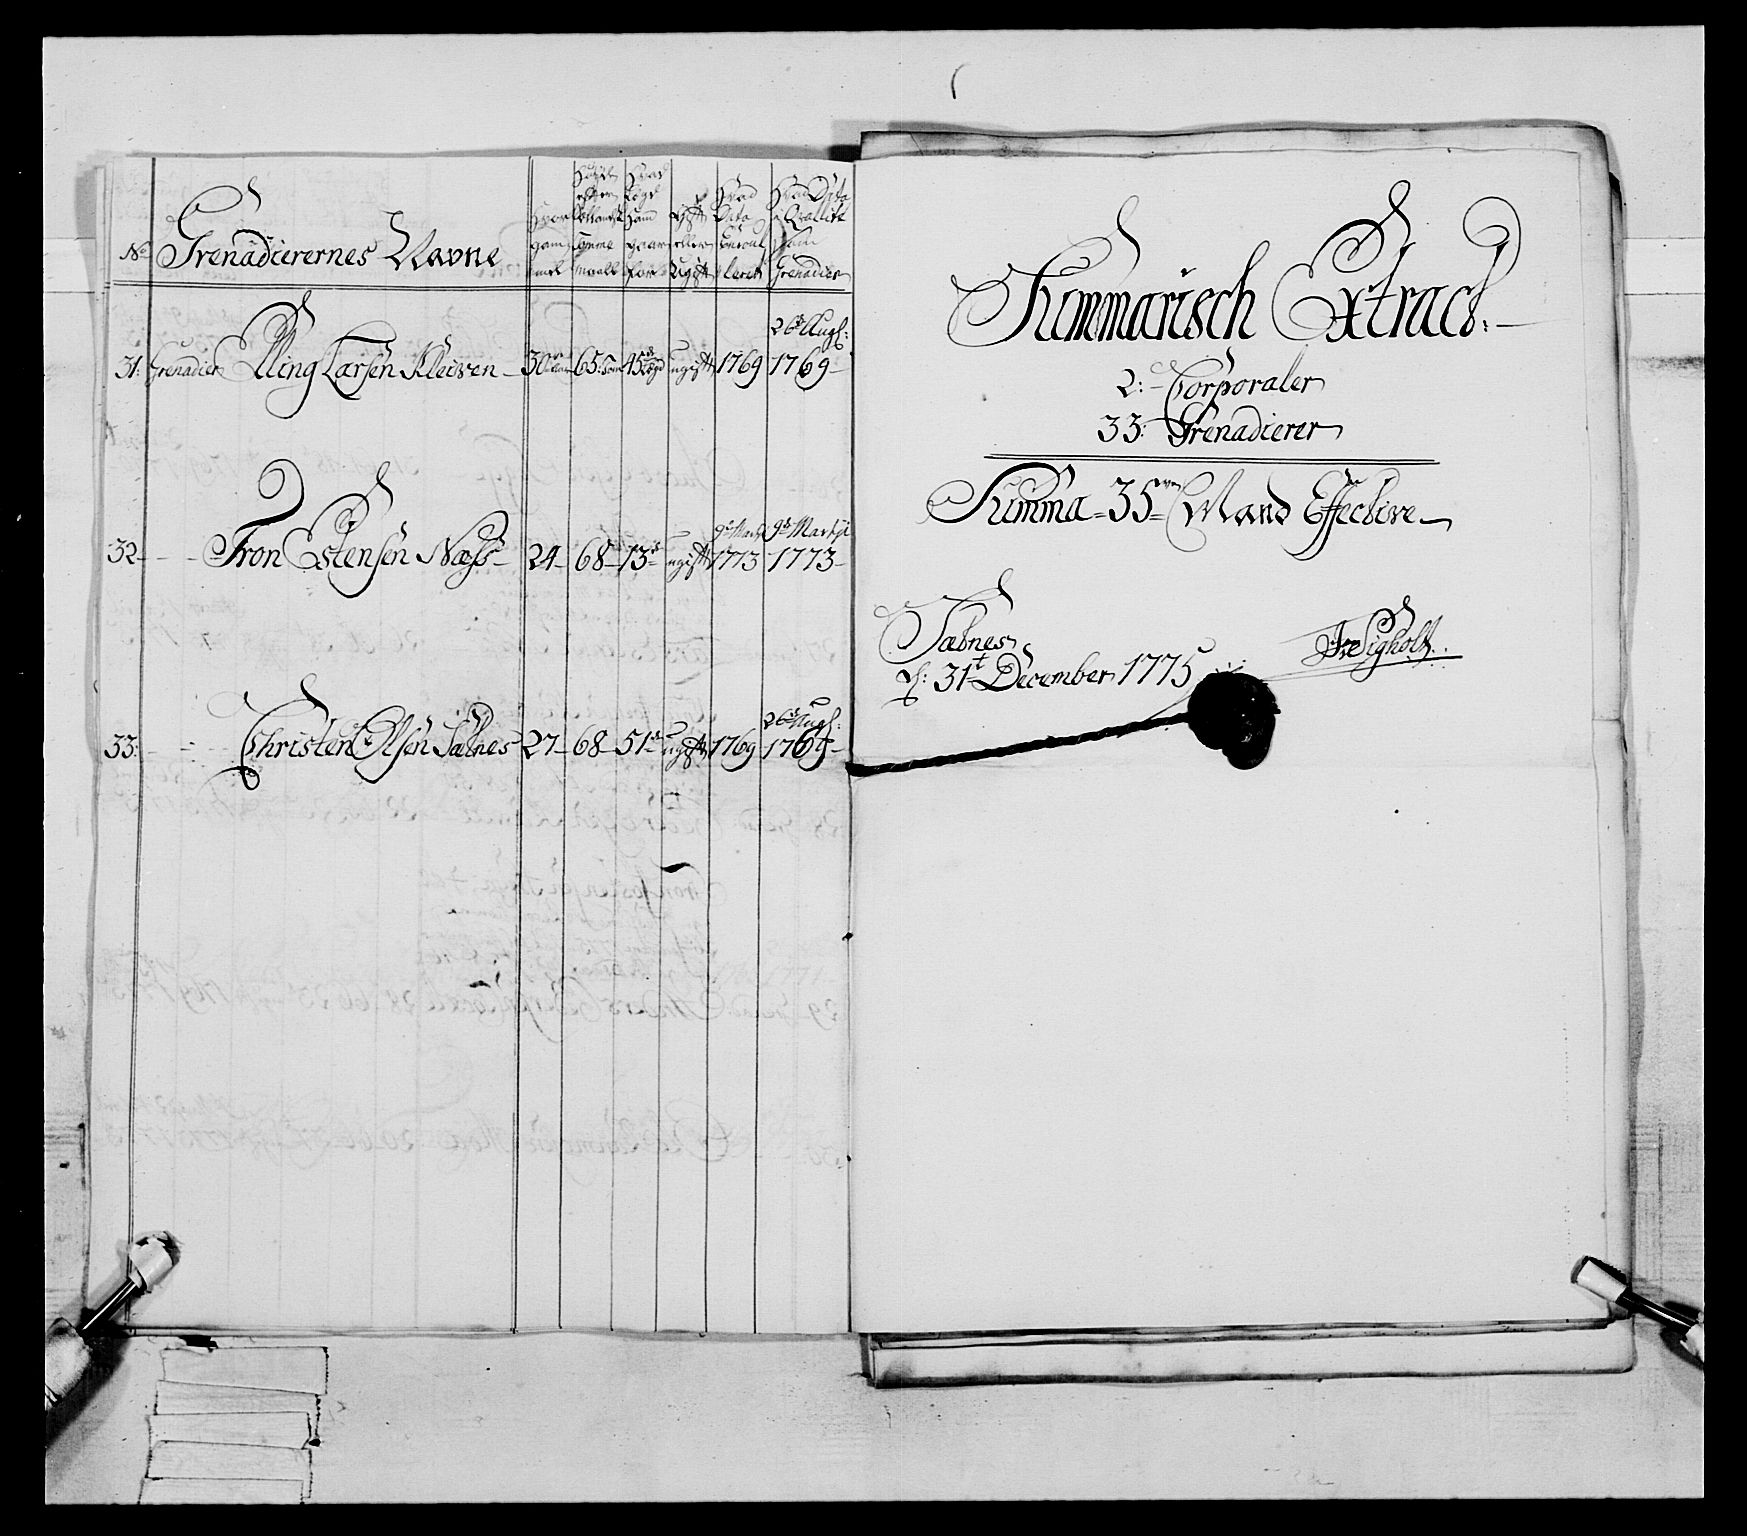 No Grenadierernes Navne
Hvor gam̄el
Høyde efter tom̄e maal
Hvad Lægd Ham gaar for
Gift eller Ugift
Hvad Dato
Hvad Dato som Grenadier
31: Grenadier Elling Larsen Kleiven 30 65: 45de Lægd ugift 1769 26de Augs: 1769
32 - - Tron Estensen Næss 24 68 13de ugift 9de Marty 1773 9de Marty 1773
33: - - Christen Olsen Sæbnes 27 68 51de ugift 1769 26de Augs: 1769
Summarisch Extract:
2: Corporaler
33: Grenadierer
Summa 35 Mand Effective
Sæbnes
d: 31t December 1775
Sigholt